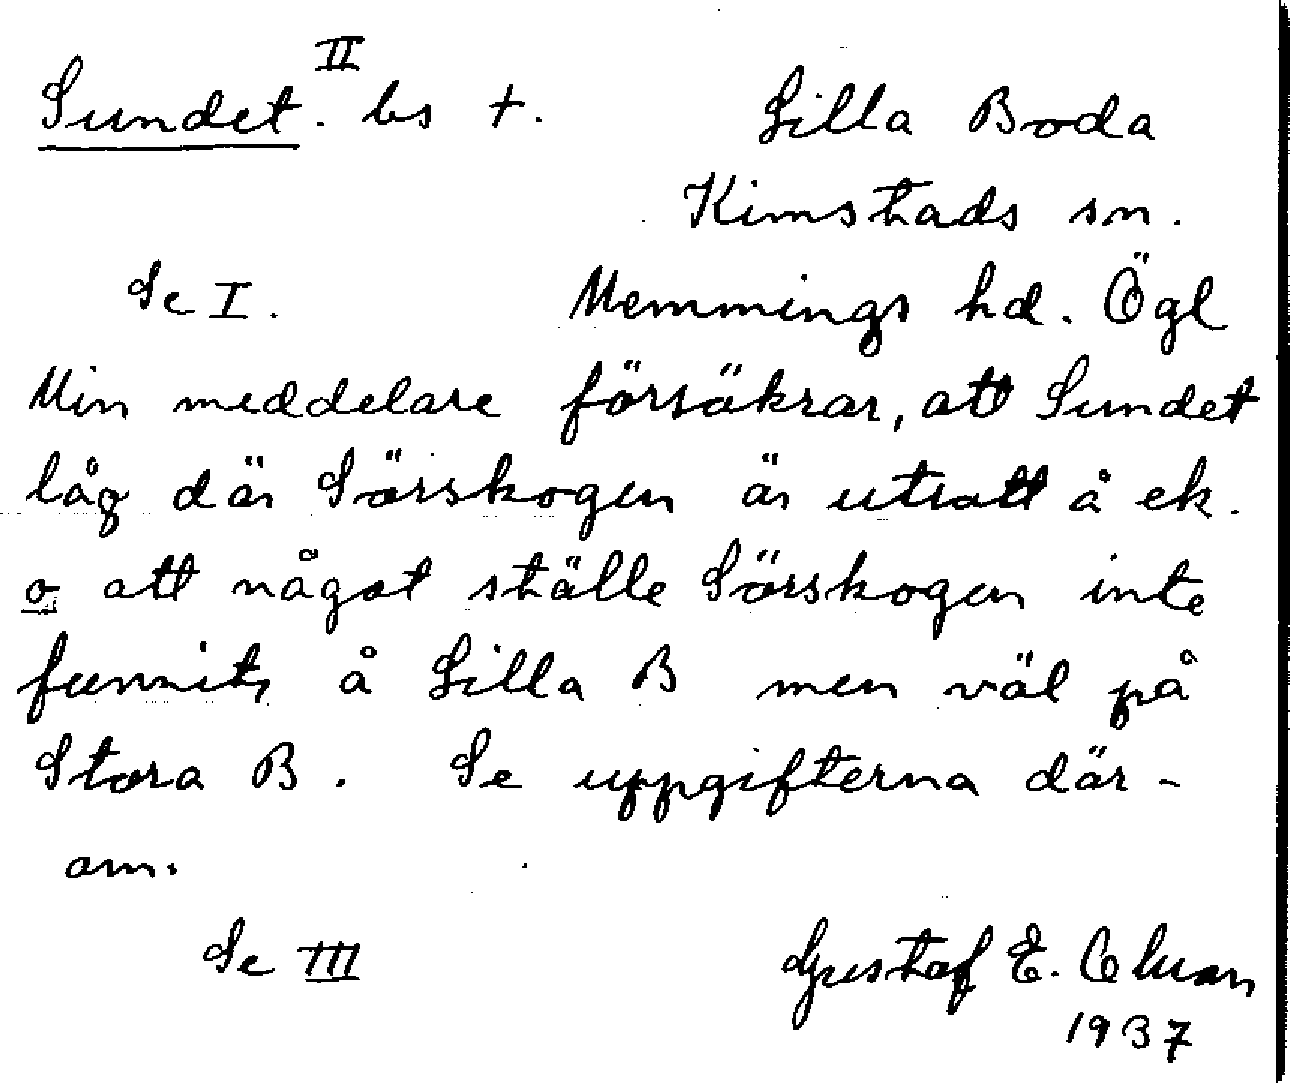 Sundet. II bs †. Lilla Boda
Kimstads sn.
Se I. Memmings hd. Ögl
Min meddelare försäkrar, att Sundet
låg där Sörskogen är utsatt å ek.
o att något ställe Sörskogen inte
funnits å Lilla B men väl på
Stora B. Se uppgifterna där-
om.
Se III Gustaf E.
1937